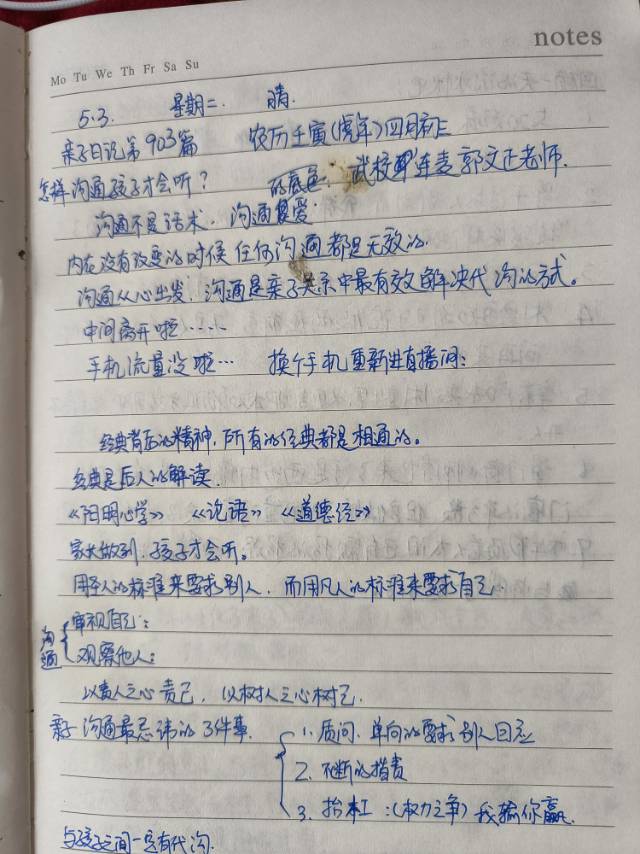 notes
Mo Tu We Th Fr Sa Su
5.3. 星期二. 晴.
亲子日记第903篇 农历壬寅(虎年)四月初三
怎样沟通孩子才会听? 武校 连麦郭文正老师.
沟通不是话术. 沟通的底色: 爱
内在没有改变的时候任何沟通都是无效的.
沟通从心出发. 沟通是亲子关系中最有效解决代沟的方式。
中间离开啦……
手机流量没啦… 换个手机重新进直播间:
经典背后的精神, 所有的经典都是相通的。
经典是后人的解读.
《阳明心学》 《论语》 《道德经》
家长做到. 孩子才会听。
用圣人的标准来要求别人, 而用凡人的标准来要求自己
沟通 { 审视自己:
观察他人:
以责人之心责己, 以树人之心树己.
亲子沟通最忌讳的3件事. { 1. 质问. 单向的要求别人回应
2. 不断的指责
3. 抬杠:(权力之争) 我输你赢.
与孩子之间一定有代沟.